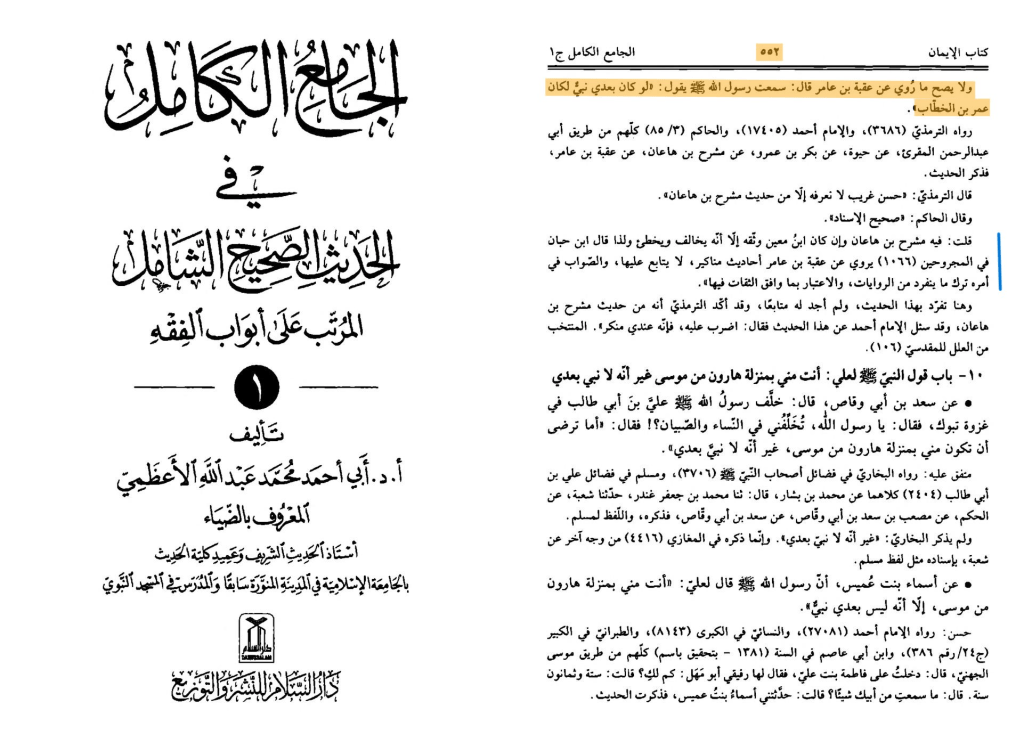 الجامع الكامل
في
الحديث الصحيح الشامل
المرتب على أبواب الفقه
١
تأليف
أ. د. أبي أحمد محمد عبد الله الأعظمي
المعروف بالضياء
أستاذ الحديث الشريف وعميد كلية الحديث
بالجامعة الإسلامية في المدينة المنورة سابقا والمدرس في المسجد النبوي
دار السلام
DARUSSALAM
دار السلام للنشر والتوزيع
كتاب الإيمان ٥٥٢ الجامع الكامل ج١
ولا يصح ما رُوي عن عقبة بن عامر قال: سمعت رسول الله ﷺ يقول: «لو كان بعدي نبيٌّ لكان
عمر بن الخطّاب».
رواه الترمذيّ (٣٦٨٦)، والإمام أحمد (١٧٤٠٥)، والحاكم (٣/ ٨٥) كلّهم من طريق أبي
عبدالرحمن المقرئ، عن حيوة، عن بكر بن عمرو، عن مشرح بن هاعان، عن عقبة بن عامر،
فذكر الحديث.
قال الترمذيّ: «حسن غريب لا نعرفه إلّا من حديث مشرح بن هاعان».
وقال الحاكم: «صحيح الإسناد».
قلت: فيه مشرح بن هاعان وإن كان ابنُ معين وثّقه إلّا أنّه يخالف ويخطئ ولذا قال ابن حبان
في المجروحين (١٠٦٦) يروي عن عقبة بن عامر أحاديث مناكير، لا يتابع عليها، والصّواب في
أمره ترك ما ينفرد من الروايات، والاعتبار بما وافق الثقات فيها».
وهنا تفرّد بهذا الحديث، ولم أجد له متابعًا، وقد أكّد الترمذيّ أنه من حديث مشرح بن
هاعان، وقد سئل الإمام أحمد عن هذا الحديث فقال: اضرب عليه، فإنّه عندي منكر». المنتخب
من العلل للمقدسيّ (١٠٦).
١٠- باب قول النبيّ ﷺ لعلي: أنت مني بمنزلة هارون من موسى غير أنّه لا نبي بعدي
• عن سعد بن أبي وقاص، قال: خلَّف رسولُ الله ﷺ عليَّ بنَ أبي طالب في
غزوة تبوك، فقال: يا رسول الله، تُخَلِّفُني في النّساء والصّبيان؟! فقال: «أما ترضى
أن تكون مني بمنزلة هارون من موسى، غير أنّه لا نبيَّ بعدي».
متفق عليه: رواه البخاريّ في فضائل أصحاب النّبيّ ﷺ (٣٧٠٦)، ومسلم في فضائل علي بن
أبي طالب (٢٤٠٤) كلاهما عن محمد بن بشار، قال: ثنا محمد بن جعفر غندر، حدّثنا شعبة، عن
الحكم، عن مصعب بن سعد بن أبي وقّاص، عن سعد بن أبي وقّاص، فذكره، واللّفظ لمسلم.
ولم يذكر البخاريّ: «غير أنّه لا نبيّ بعدي». وإنّما ذكره في المغازي (٤٤١٦) من وجه آخر عن
شعبة، بإسناده مثل لفظ مسلم.
• عن أسماء بنت عُميس، أنّ رسول الله ﷺ قال لعليّ: «أنت مني بمنزلة هارون
من موسى، إلّا أنّه ليس بعدي نبيٌّ».
حسن: رواه الإمام أحمد (٢٧٠٨١)، والنسائيّ في الكبرى (٨١٤٣)، والطبرانيّ في الكبير
(ج٢٤/ رقم ٣٨٦)، وابن أبي عاصم في السنة (١٣٨١ - بتحقيق باسم) كلّهم من طريق موسى
الجهنيّ، قال: دخلتُ على فاطمة بنت عليّ، فقال لها رفيقي أبو مَهَل: كم لكِ؟ قالت: ستة وثمانون
سنة. قال: ما سمعتِ من أبيك شيئًا؟ قالت: حدّثتني أسماءُ بنت عميس، فذكرت الحديث.